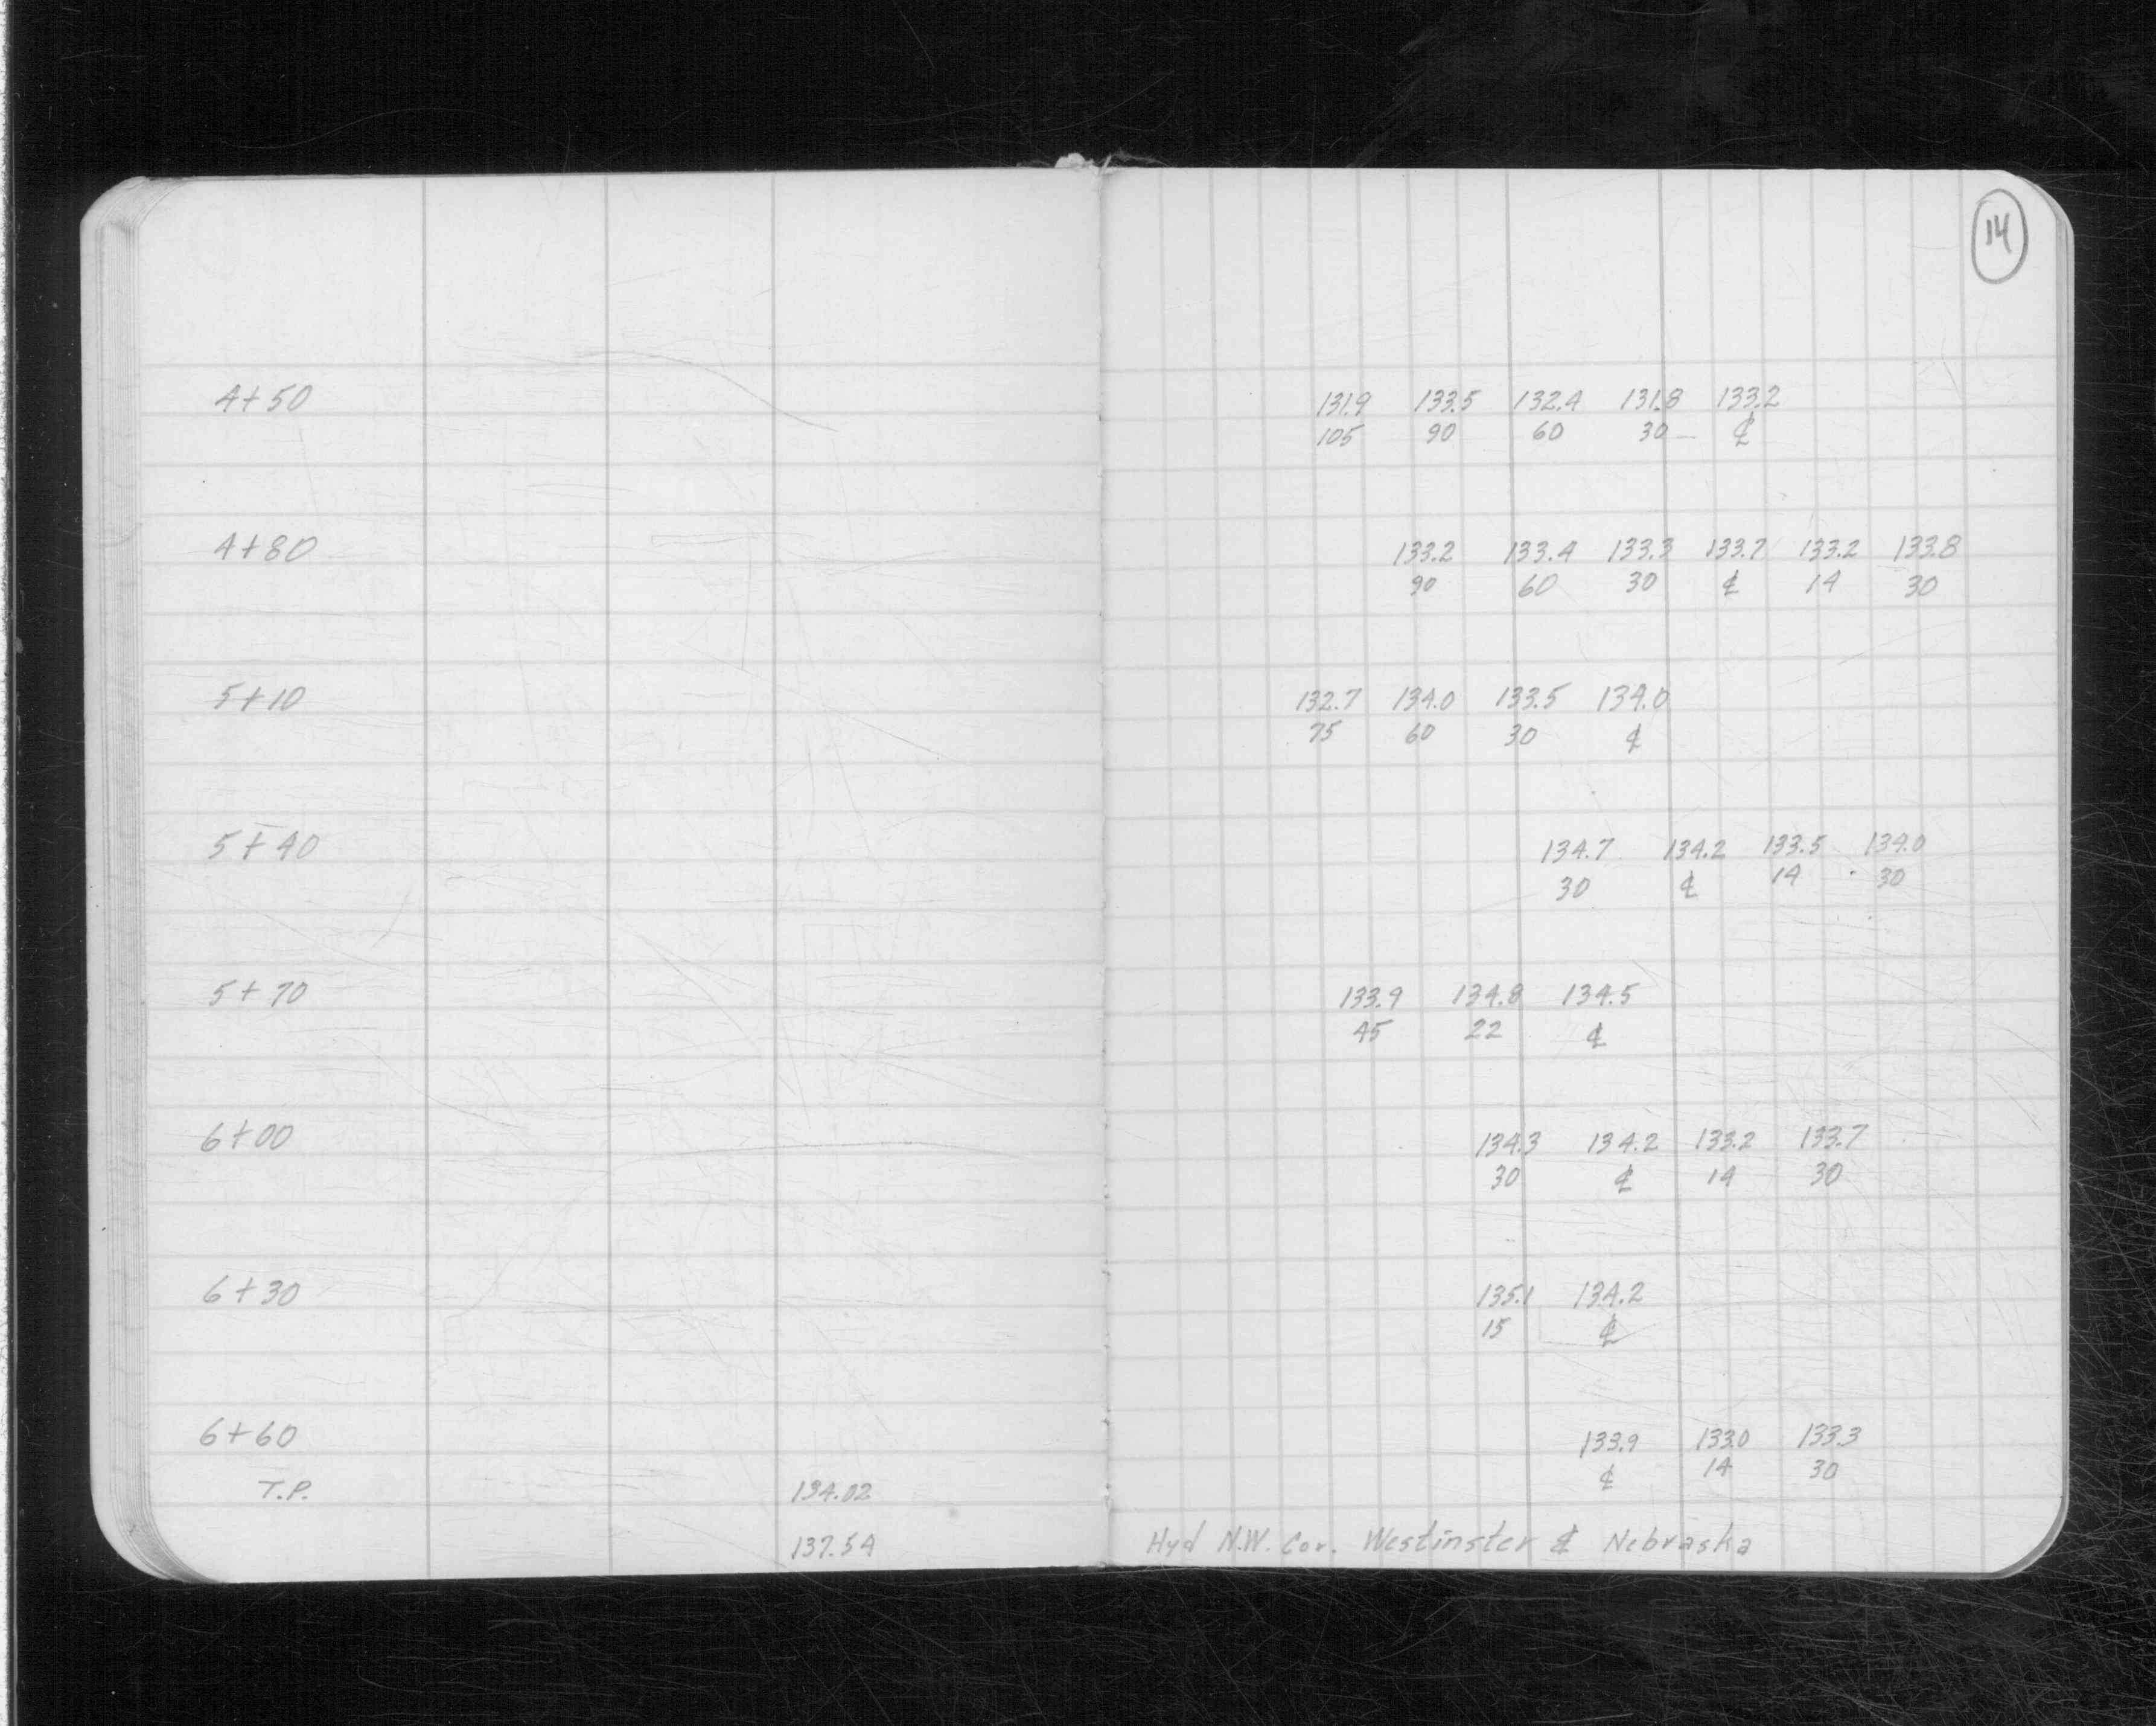 14
4+50 131.9 133.5 132.4 131.8 133.2
105 90 60 30 ℄
4+80 133.2 133.4 133.3 133.7 133.2 133.8
90 60 30 ℄ 14 30
5+10 132.7 134.0 133.5 134.0
75 60 30 ℄
5+40 134.7 134.2 133.5 134.0
30 ℄ 14 30
5+70 133.9 134.8 134.5
45 22 ℄
6+00 134.3 134.2 133.2 133.7
30 ℄ 14 30
6+30 135.1 134.2
15 ℄
6+60 133.9 133.0 133.3
℄ 14 30
T.P. 134.02
137.54 Hyd N.W. Cor. Westinster & Nebraska